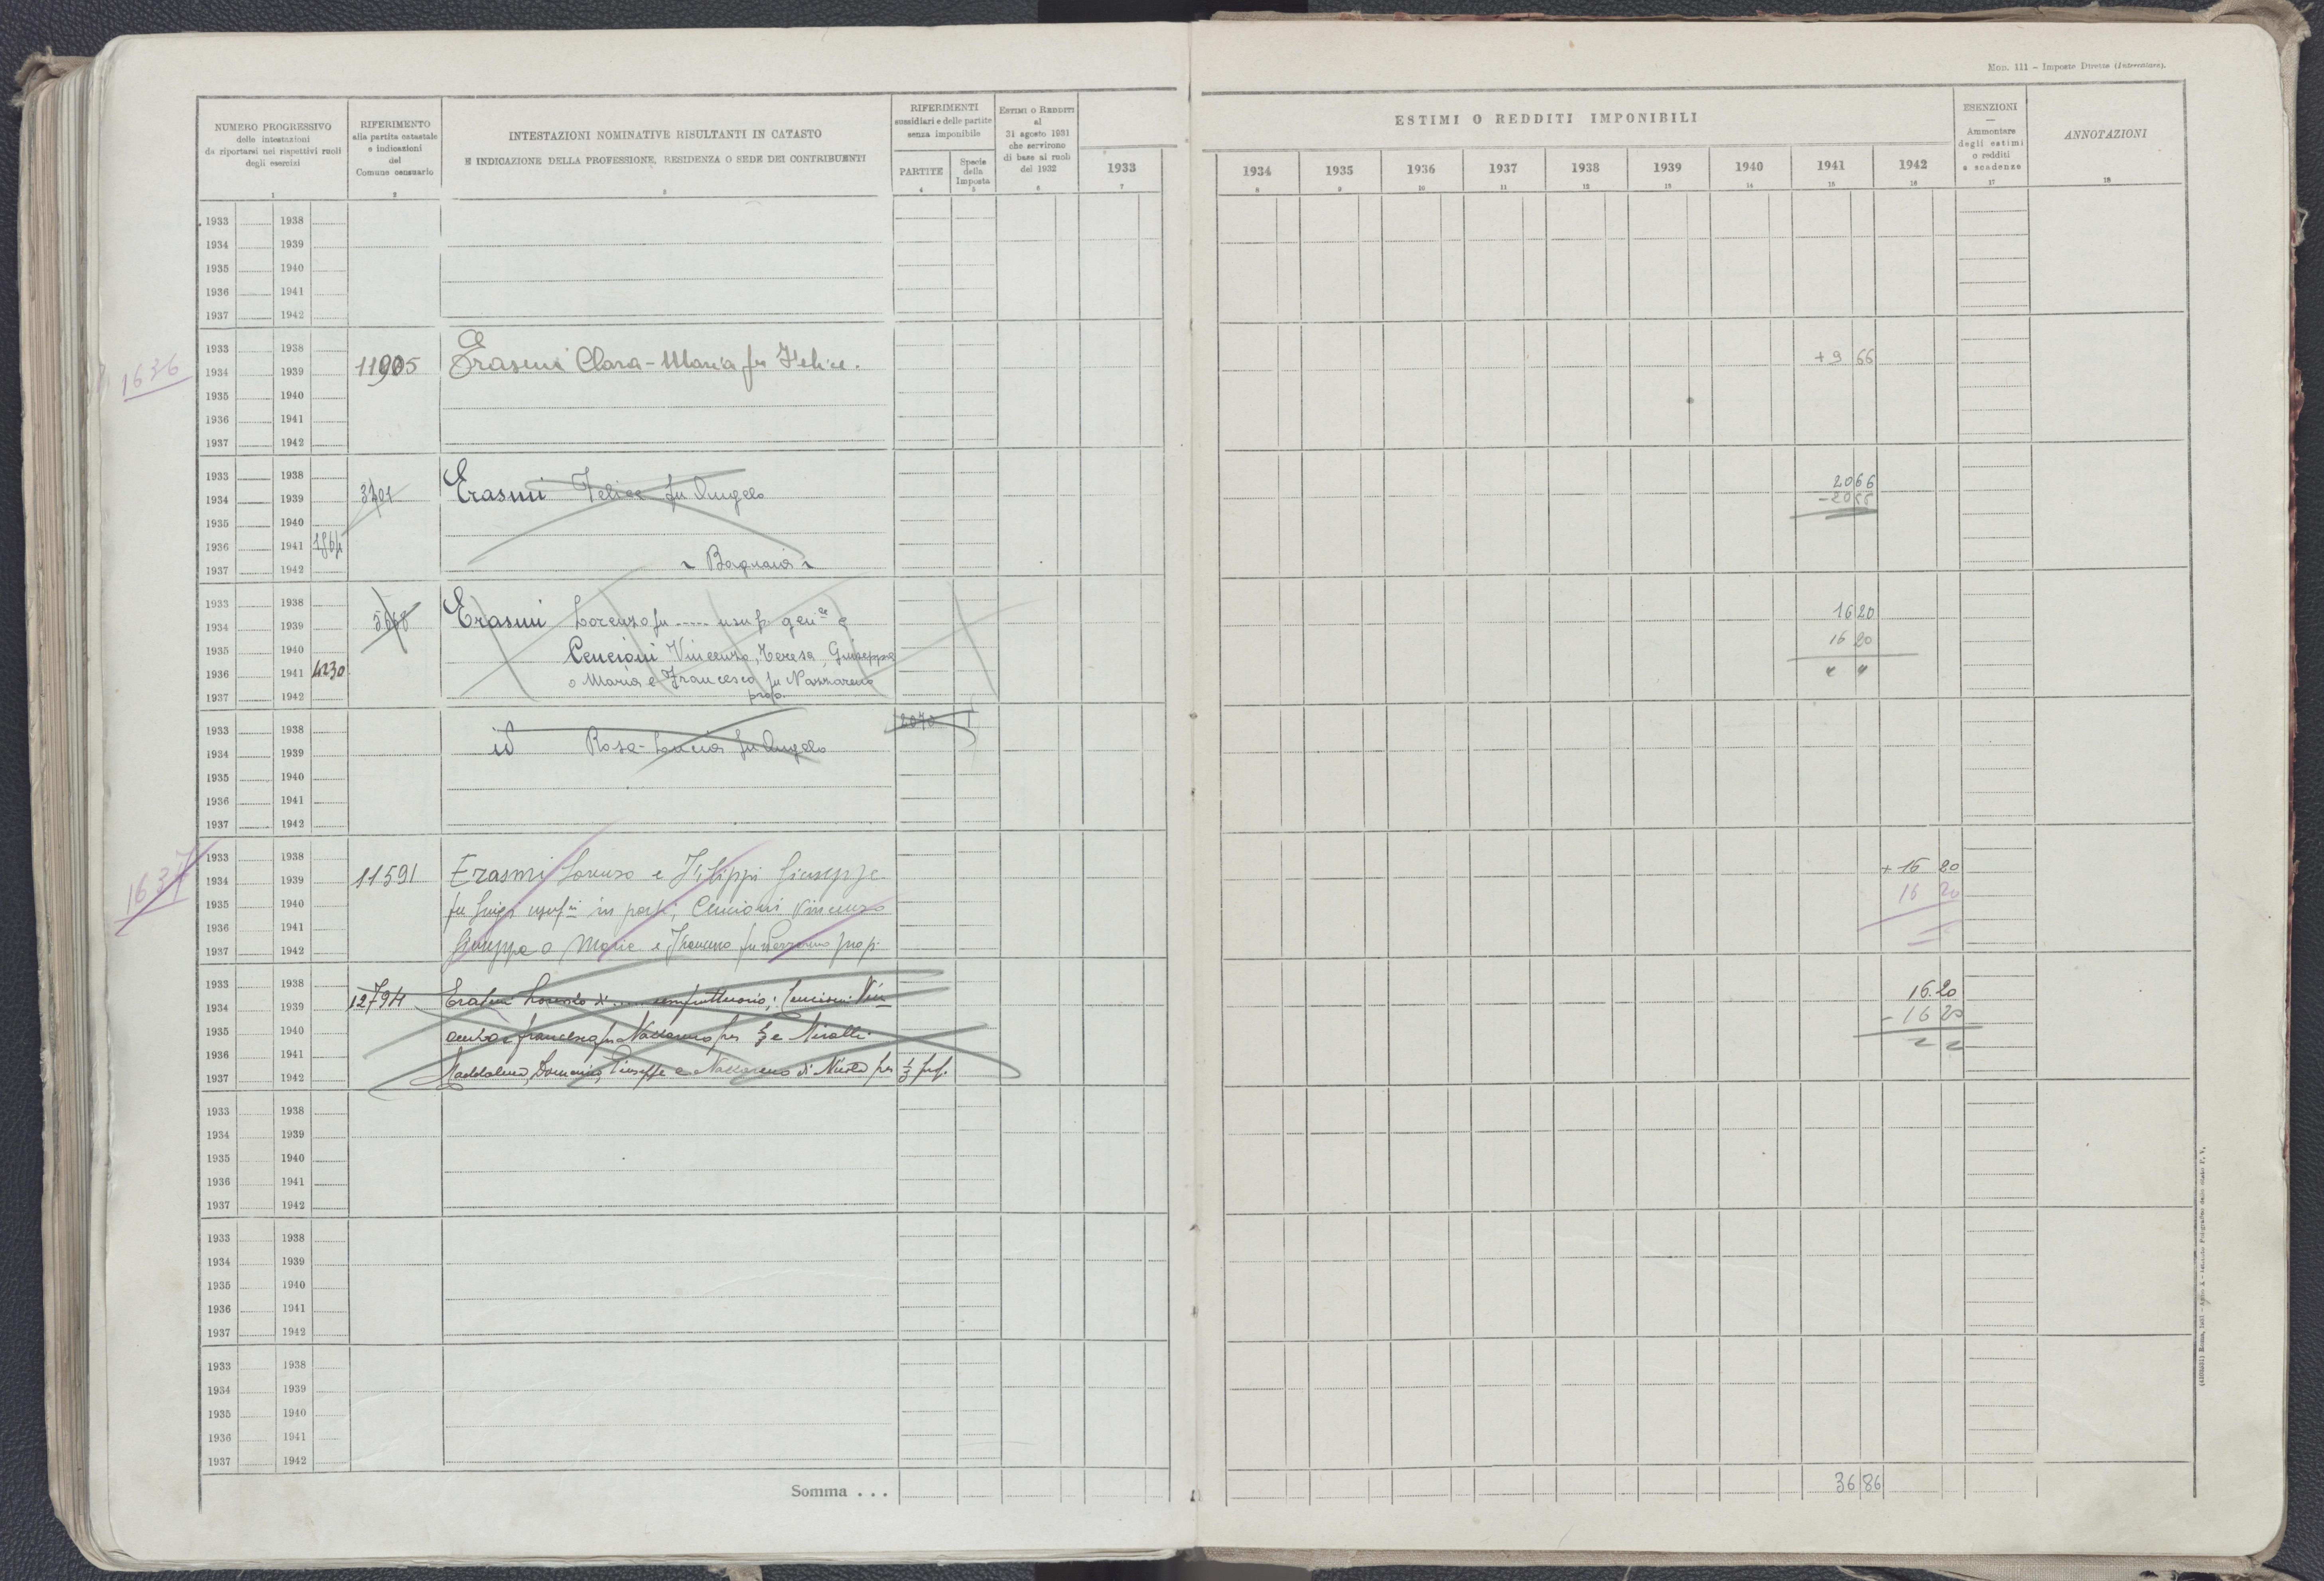 Mod. 111 - Imposte Dirette (Intercalare).
NUMERO PROGRESSIVO
delle intestazioni
da riportarsi nei rispettivi ruoli
degli esercizi
1
RIFERIMENTO
alla partita catastale
e indicazioni
del
Comune censuario
2
INTESTAZIONI NOMINATIVE RISULTANTI IN CATASTO
E INDICAZIONE DELLA PROFESSIONE, RESIDENZA O SEDE DEI CONTRIBUENTI
3
RIFERIMENTI
sussidiari e delle partite
senza imponibile
PARTITE
4
Specie
della
Imposta
5
ESTIMI O REDDITI
al
31 agosto 1931
che servirono
di base ai ruoli
del 1932
6
1933
7
ESTIMI O REDDITI IMPONIBILI
1934 1935 1936 1937 1938 1939 1940 1941 1942
8 9 10 11 12 13 14 15 16
ESENZIONI
—
Ammontare
degli estimi
o redditi
e scadenze
17
ANNOTAZIONI
18
1933 1938
1934 1939
1935 1940
1936 1941
1937 1942
1636
1933 1938
1934 1939 11905 Erasmi Clara-Maria fu Felice. +9 66
1935 1940
1936 1941
1937 1942
1933 1938 2066
1934 1939 Erasmi Felice fu Angelo -2066
1935 1940
1936 1941
1937 1942 Bagnaia
1933 1938 1620
1934 1939 Erasmi Lorenzo fu ----- usuf. gen. e
1935 1940 Cencioni Vincenzo, Teresa, Giuseppa 16 20
1936 1941 4230 o Maria e Francesco fu Nazzareno
1937 1942 prop.
1933 1938 2070 1
1934 1939 id Rosa-Lucia fu Angelo
1935 1940
1936 1941
1937 1942
1637
1933 1938 + 16 20
1934 1939 11591 Erasmi Lorenzo e Filippi Giuseppe
1935 1940 fu Luigi in parte, Cencioni Vincenzo 16 20
1936 1941
1937 1942 Giuseppa o Maria e Francesco fu Nazzareno prop.
1933 1938 16.20
1934 1939 12794 Erasmi Lorenzo di usufruttuario; Cencioni Vin
1935 1940 - 16 20
1936 1941 cenzo e Francesco fu Nazzareno per e
1937 1942 Maddalena, Domenico, Giuseppe e Nazzareno di Nicola per 1/3 prop.
1933 1938
1934 1939
1935 1940
1936 1941
1937 1942
1933 1938
1934 1939
1935 1940
1936 1941
1937 1942
1933 1938
1934 1939
1935 1940
1936 1941
1937 1942
Somma . . . 36 86